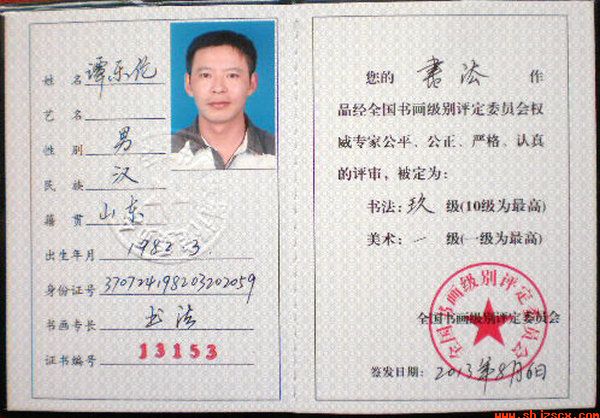 姓名 谭乐伦
艺名
性别 男
民族 汉
籍贯 山东
出生年月 1982.3.
身份证号 370724198203202059
书画专长 书法
证书编号 13153
您的 书法 作
品经全国书画级别评定委员会权
威专家公平、公正、严格、认真
的评审，被定为：
书法：玖 级(10级为最高)
美术：一 级(一级为最高)
全国书画级别评定委员会
全国书画级别评定委员会
签发日期：2013年8月6日
www.shjzscx.com